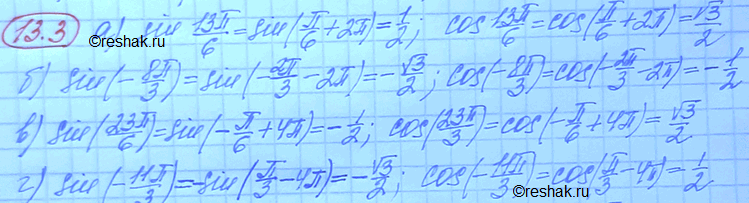 13.3 а) sin 13π/6 = sin(π/6 + 2π) = 1/2; cos 13π/6 = cos(π/6 + 2π) = √3/2
©reshak.ru
б) sin(-8π/3) = sin(-2π/3 - 2π) = -√3/2; cos(-8π/3) = cos(-2π/3 - 2π) = -1/2
в) sin(23π/6) = sin(-π/6 + 4π) = -1/2; cos(23π/3) = cos(-π/6 + 4π) = √3/2
г) sin(-11π/3) = -sin(π/3 - 4π) = -√3/2; cos(-11π/3) = cos(π/3 - 4π) = 1/2.
©reshak.ru